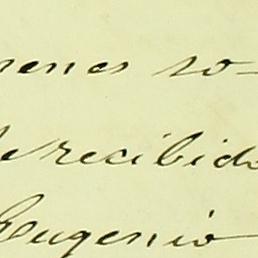 nenes so-
e recibido
Eugenio